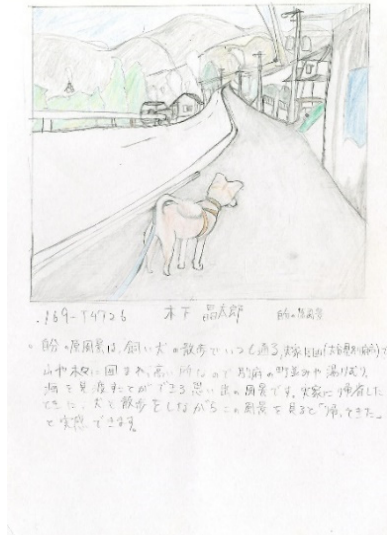 木下 晶太郎 自分の原風景
。自分の原風景は、飼い犬の散歩でいつも通る、実家
山や木々に囲まれ、高い所なので別府の町並みや湯けむり、
海を見渡すことができる思い出の風景です。実家に帰省した
ときに、犬と散歩をしながらこの風景を見ると「帰ってきた。」
と実感できます。